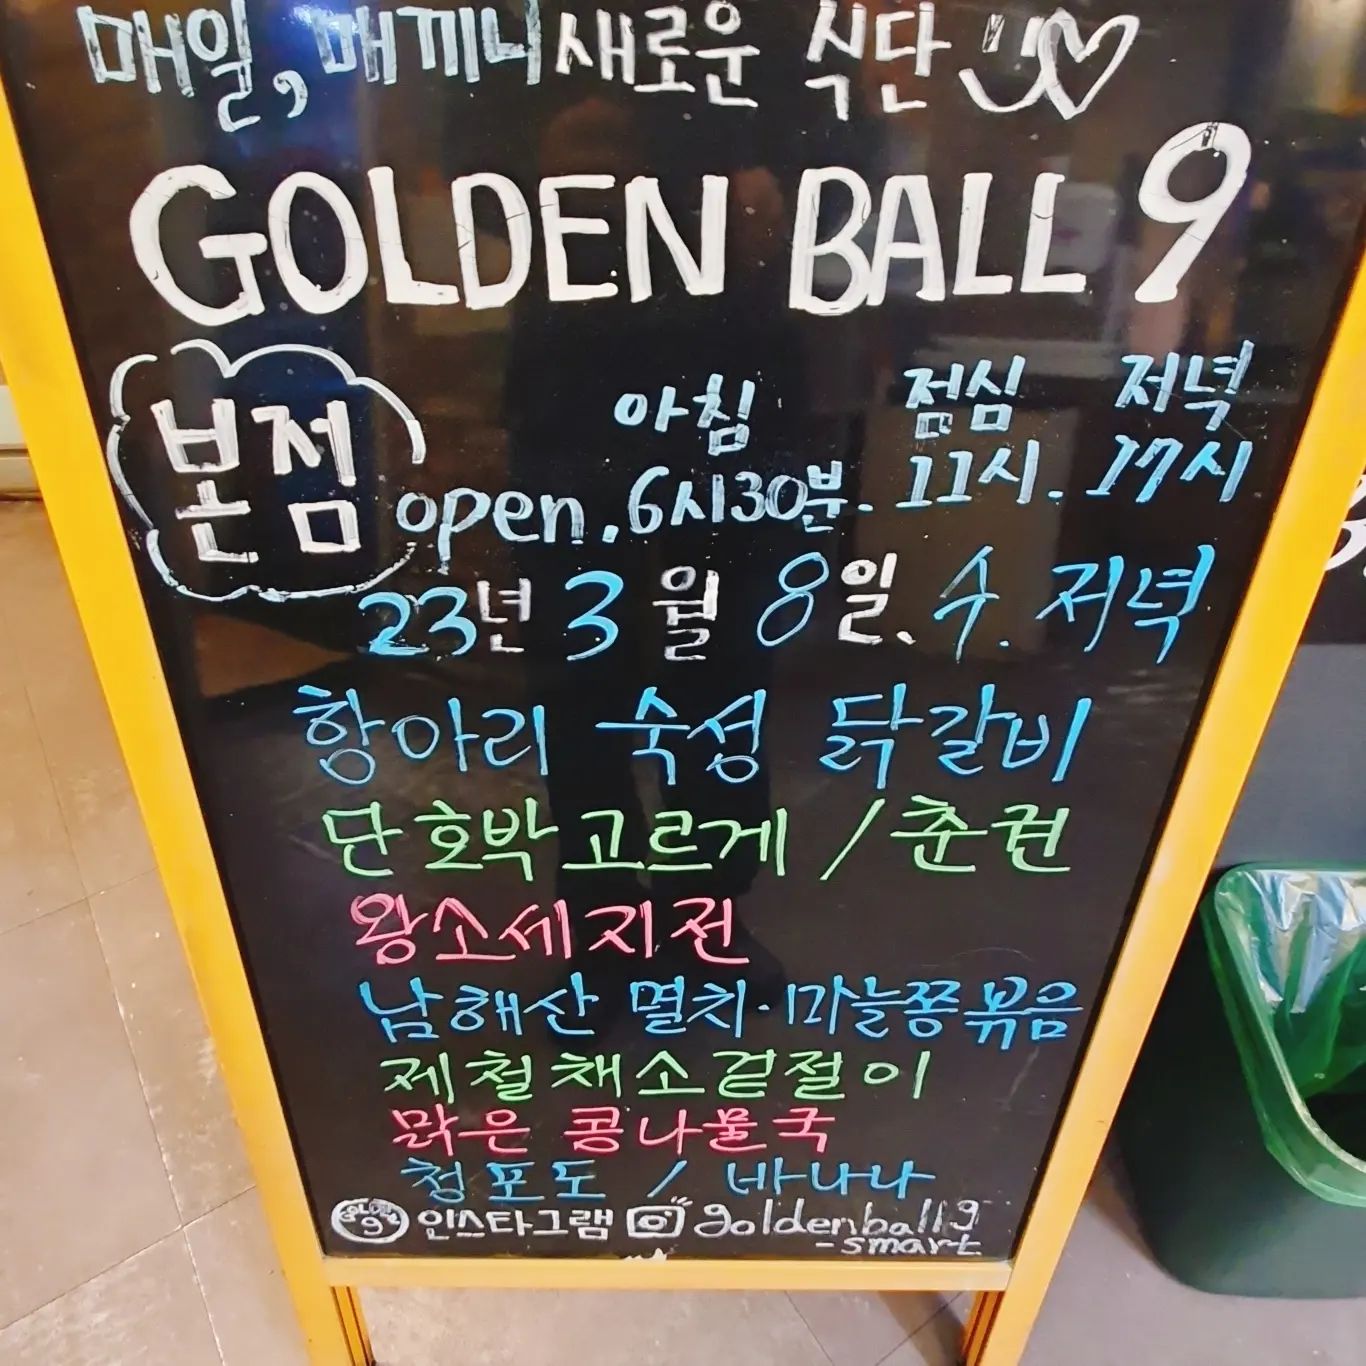 매일, 매끼니 새로운 식단
GOLDEN BALL 9
본점
아침 점심 저녁
open. 6시30분. 11시. 17시
23년 3월 8일. 수. 저녁
항아리 숙성 닭갈비
단호박고르게 / 춘권
왕소세지전
남해산 멸치·마늘쫑볶음
제철채소겉절이
맑은 콩나물국
청포도 / 바나나
인스타그램 goldenball9
-smart